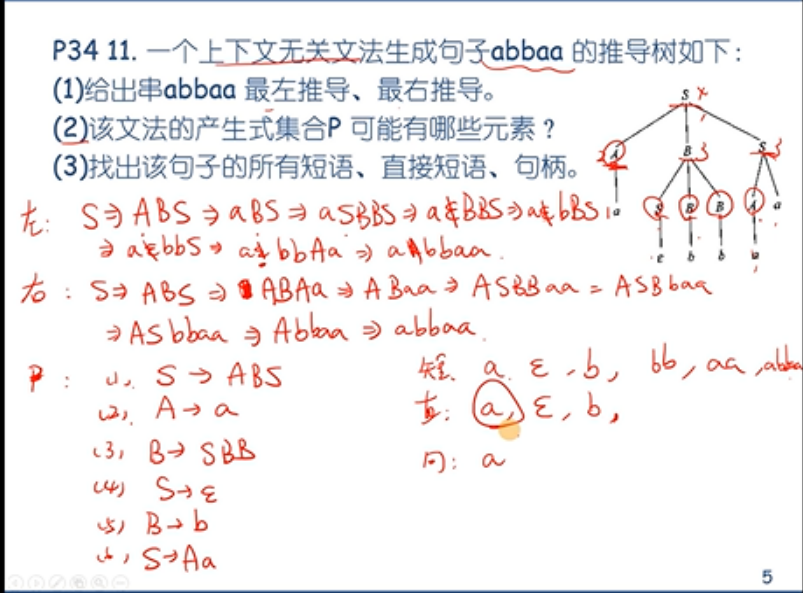 P34 11. 一个上下文无关文法生成句子abbaa 的推导树如下：
(1)给出串abbaa 最左推导、最右推导。
(2)该文法的产生式集合P 可能有哪些元素？
(3)找出该句子的所有短语、直接短语、句柄。
S
A B S
a S B B A a
ε b b a
左: S⇒ABS⇒aBS⇒aSBBS⇒aεBBS⇒aεbBS
⇒aεbbS⇒aεbbAa⇒abbaa
右: S⇒ABS⇒ABAa⇒ABaa⇒ASBBaa=ASBbaa
⇒ASbbaa⇒Abbaa⇒abbaa
P: (1) S→ABS
(2) A→a
(3) B→SBB
(4) S→ε
(5) B→b
(6) S→Aa
短: a, ε, b, bb, aa, abbaa
直: a, ε, b,
句: a
5